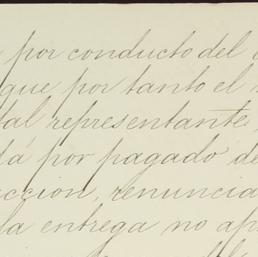 por conducto del
que por tanto el
tal representante,
dá por pagado de
ccion, renuncia
la entrega no ap